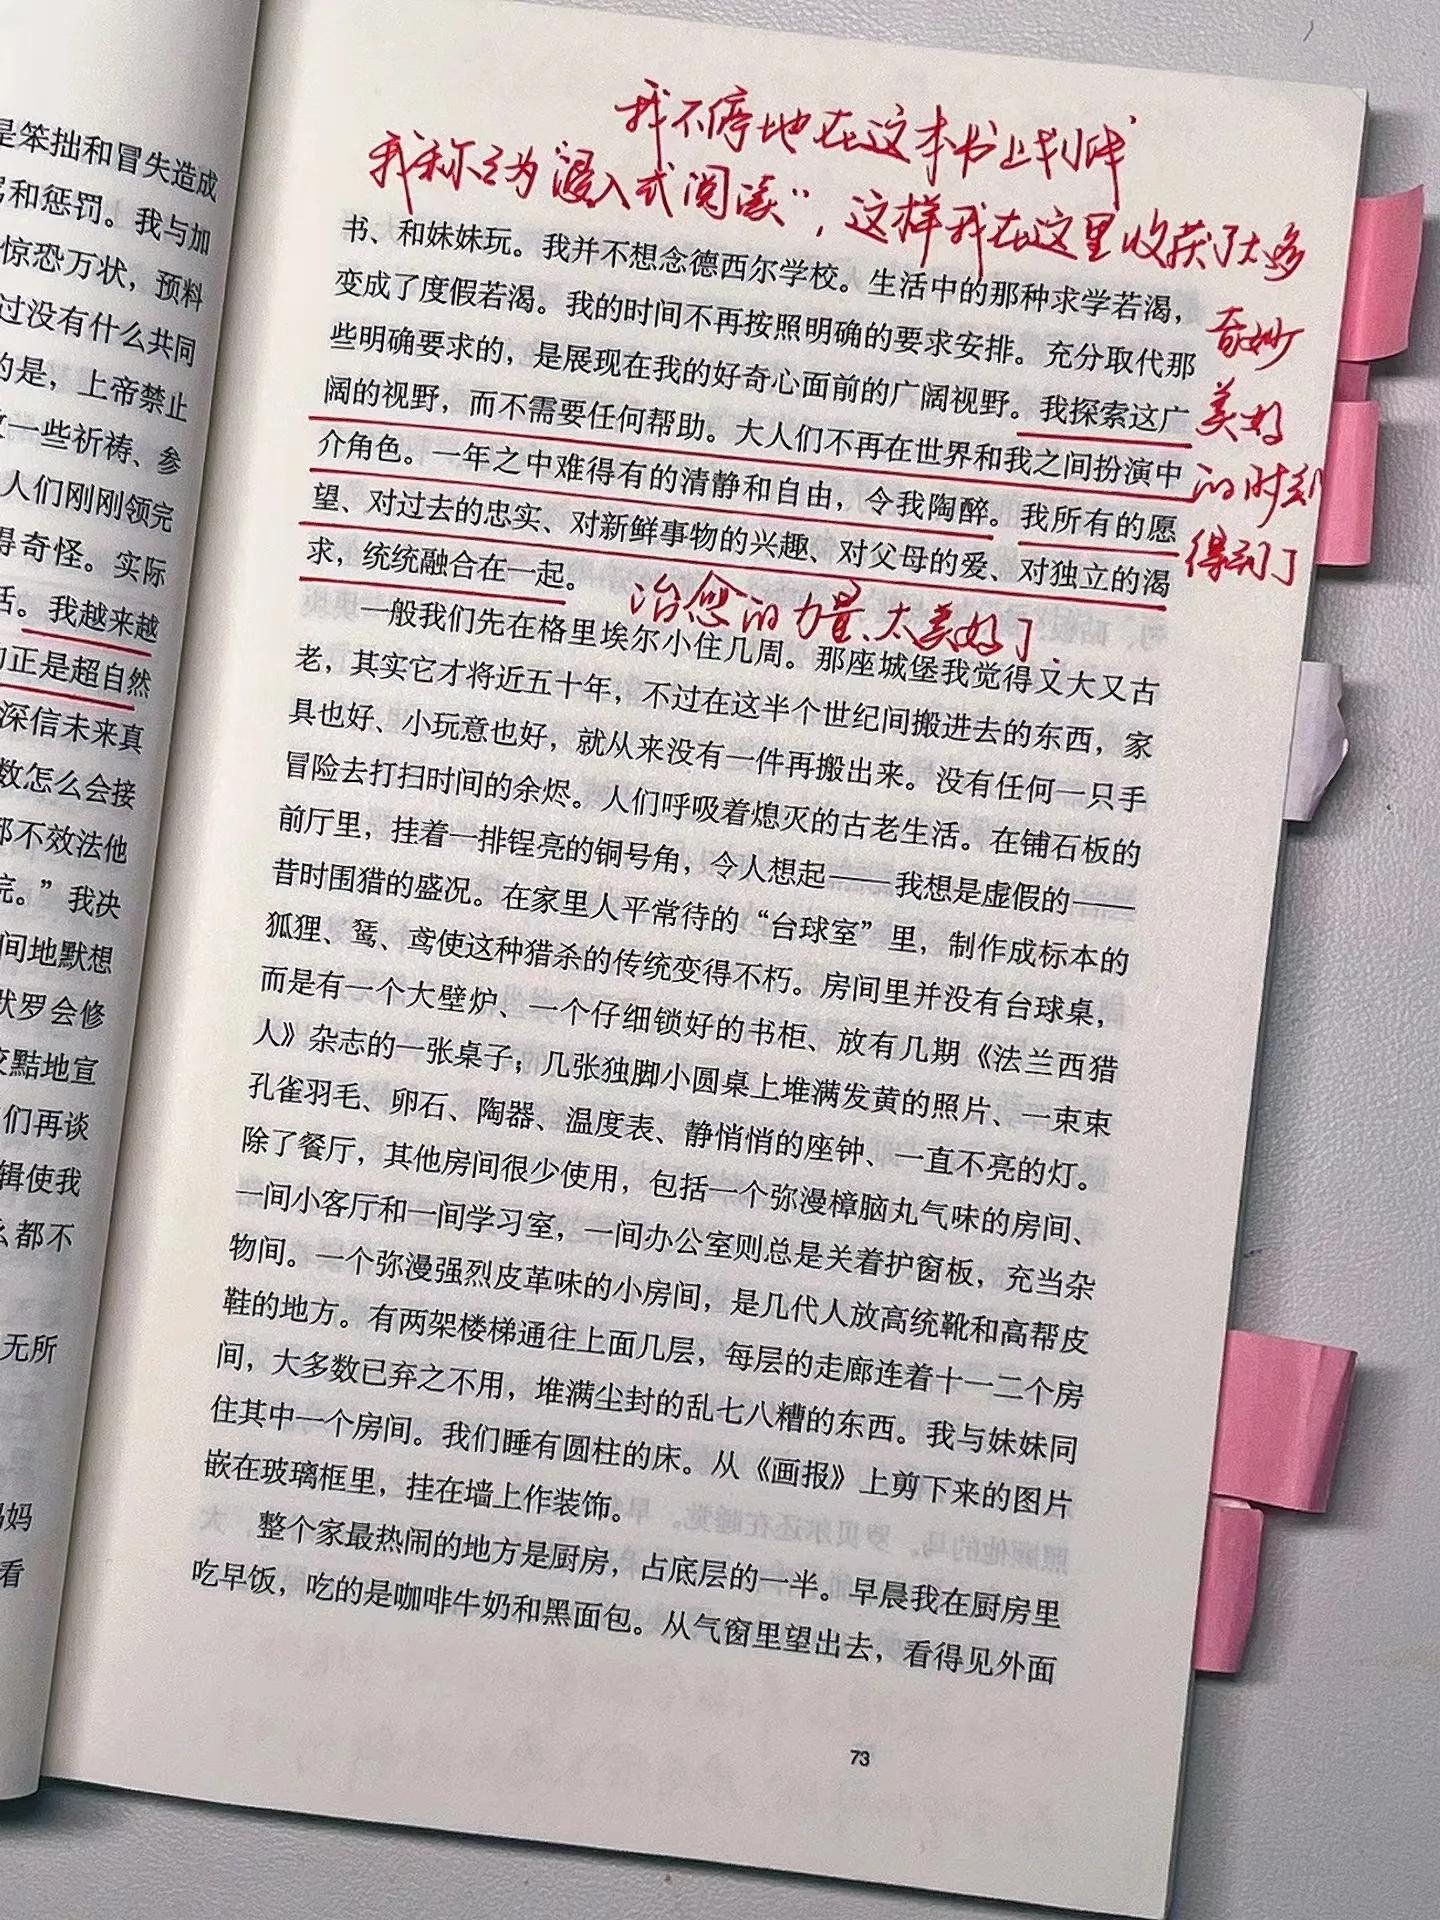 是笨拙和冒失造成
和惩罚。我与加
惊恐万状，预料
过没有什么共同
的是，上帝禁止
一些祈祷、参
人们刚刚领完
得奇怪。实际
活。我越来越
正是超自然
深信未来真
数怎么会接
都不效法他
院。”我决
间地默想
默罗会修
狡黠地宣
们再谈
辑使我
么都不
无所
妈妈
看
我不停地在这本书上划线
我称之为“浸入式阅读”，这样我在这里收获了太多
奇妙
美好
的时刻
得到了
书、和妹妹玩。我并不想念德西尔学校。生活中的那种求学若渴，
变成了度假若渴。我的时间不再按照明确的要求安排。充分取代那
些明确要求的，是展现在我的好奇心面前的广阔视野。我探索这广
阔的视野，而不需要任何帮助。大人们不再在世界和我之间扮演中
介角色。一年之中难得有的清静和自由，令我陶醉。我所有的愿
望、对过去的忠实、对新鲜事物的兴趣、对父母的爱、对独立的渴
求，统统融合在一起。
治愈的力量、太美好了.
一般我们先在格里埃尔小住几周。那座城堡我觉得又大又古
老，其实它才将近五十年，不过在这半个世纪间搬进去的东西，家
具也好、小玩意也好，就从来没有一件再搬出来。没有任何一只手
冒险去打扫时间的余烬。人们呼吸着熄灭的古老生活。在铺石板的
前厅里，挂着一排锃亮的铜号角，令人想起——我想是虚假的——
昔时围猎的盛况。在家里人平常待的“台球室”里，制作成标本的
狐狸、鵟、鸢使这种猎杀的传统变得不朽。房间里并没有台球桌，
而是有一个大壁炉、一个仔细锁好的书柜、放有几期《法兰西猎
人》杂志的一张桌子；几张独脚小圆桌上堆满发黄的照片、一束束
孔雀羽毛、卵石、陶器、温度表、静悄悄的座钟、一直不亮的灯。
除了餐厅，其他房间很少使用，包括一个弥漫樟脑丸气味的房间、
一间小客厅和一间学习室，一间办公室则总是关着护窗板，充当杂
物间。一个弥漫强烈皮革味的小房间，是几代人放高统靴和高帮皮
鞋的地方。有两架楼梯通往上面几层，每层的走廊连着十一二个房
间，大多数已弃之不用，堆满尘封的乱七八糟的东西。我与妹妹同
住其中一个房间。我们睡有圆柱的床。从《画报》上剪下来的图片
嵌在玻璃框里，挂在墙上作装饰。
整个家最热闹的地方是厨房，占底层的一半。早晨我在厨房里
吃早饭，吃的是咖啡牛奶和黑面包。从气窗里望出去，看得见外面
73